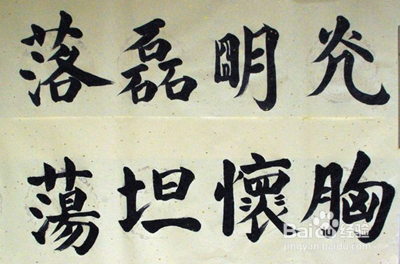 光明磊落
胸懷坦蕩
Baidu经验
jingyan.baidu.com